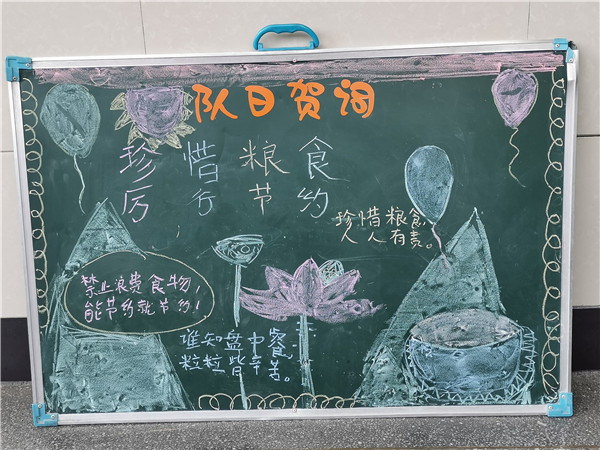 队日贺词
珍惜粮食
厉行节约
珍惜粮食,
人人有责。
禁止浪费食物,
能节约就节约!
谁知盘中餐,
粒粒皆辛苦。